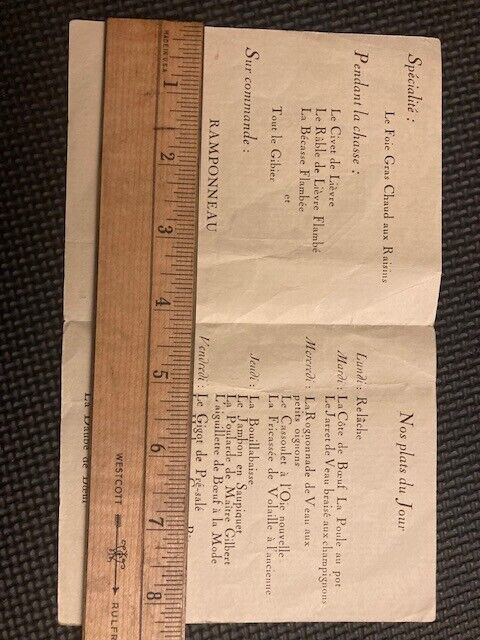 Spécialité :
Le Foie Gras Chaud aux Raisins
Pendant la chasse :
Le Civet de Lièvre
Le Râble de Lièvre Flambé
La Bécasse Flambée
et
Tout le Gibier
Sur commande :
RAMPONNEAU
Nos plats du Jour
Lundi : Relâche
Mardi : La Côte de Bœuf La Poule au pot
Le Jarret de Veau braisé aux champignons
Mercredi : La Rognonnade de Veau aux
petits oignons
Le Cassoulet à l'Oie nouvelle
La Fricassée de Volaille à l'ancienne
Jeudi : La Bouillabaisse
Le Jambon en Saupiquet
La Poularde de Maître Gilbert
L'aiguillette de Bœuf à la Mode
Vendredi : Le Gigot de Pré-salé
La Daube de Bœuf
MADE IN U.S.A.
1 2 3 4 5 6 7 8
WESTCOTT
RULER